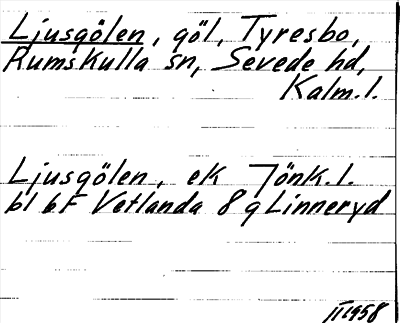 Ljusgölen, göl, Tyresbo,
Rumskulla sn, Sevede hd,
Kalm.l.
Ljusgölen, ek Jönk.l.
bl 6F Vetlanda 8g Linneryd
II 1958